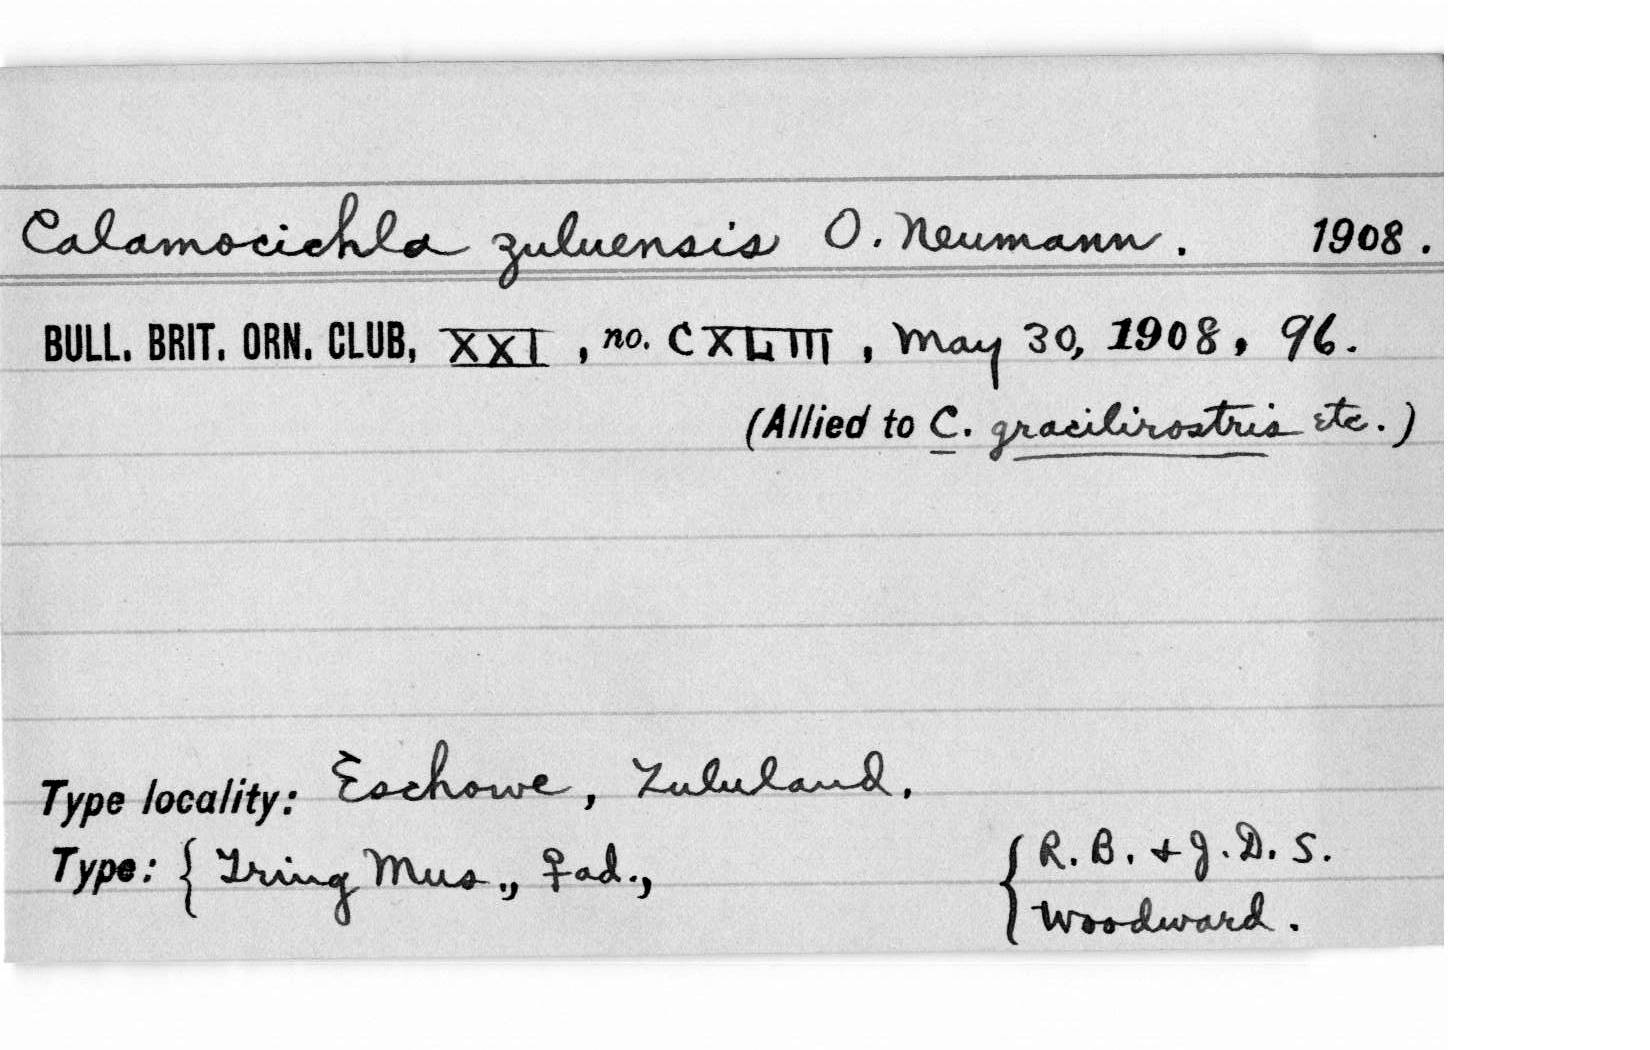 Calamocichla zuluensis O. Neumann. 1908.
BULL. BRIT. ORN. CLUB, XXI, no. CXLIII, May 30, 1908, 96.
(Allied to C. gracilirostris etc.)
Type locality: Eschowe, Zululand.
Type: { Tring Mus., ♀ ad., { R. B. & J. D. S.
Woodward.